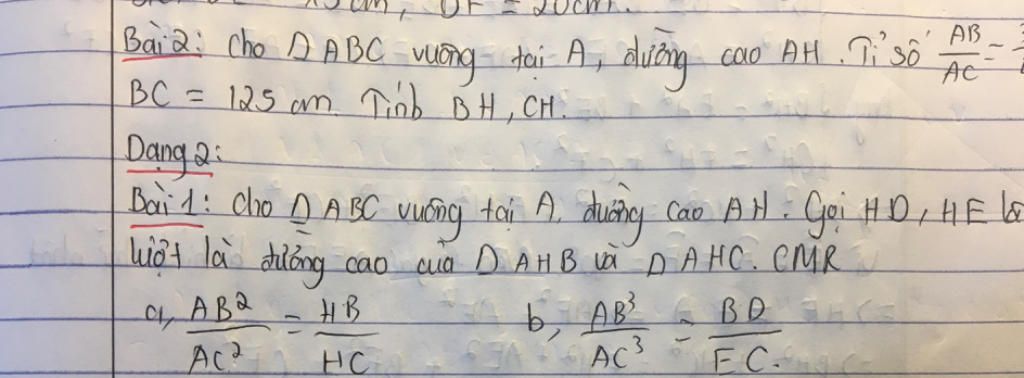 DF = 20cm.
Bài 2: Cho Δ ABC vuông tại A, đường cao AH. Tỉ số AB/AC =
BC = 125 cm. Tính BH, CH.
Dạng 2:
Bài 1: Cho Δ ABC vuông tại A, đường cao AH. Gọi HD, HE
lượt là đường cao của Δ AHB và Δ AHC. CMR
a, AB²/AC² = HB/HC b, AB³/AC³ = BD/EC.